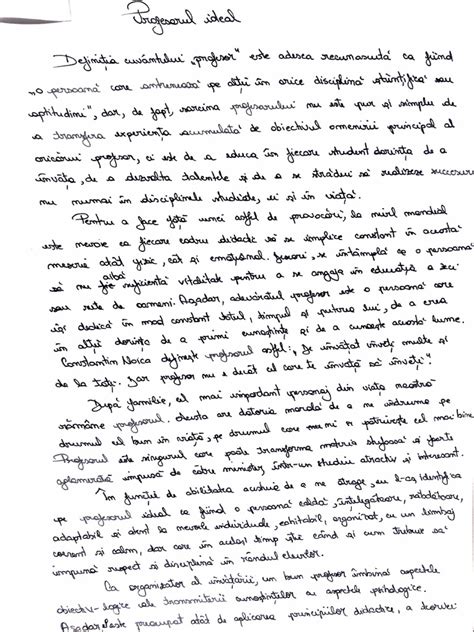 Profesorul ideal
Definiția cuvântului „profesor" este adesea recunoscută ca fiind
„o persoană care antrenează pe alții în orice disciplină științifică sau
aptitudini", dar, de fapt, sarcina profesorului nu este pur și simplu de
a transfera experiența acumulată de obiectivul omenirii principal al
oricărui profesor, ci este de a educa în fiecare student dorința de a
învăța, de a dezvolta talentele și de a se strădui să realizeze succesuri
nu numai în disciplinele studiate, ci și în viață.
Pentru a face față unei astfel de provocări, la nivel mondial
este nevoie ca fiecare cadru didactic să se implice constant în această
meserie atât fizic, cât și emoțional. Uneori, se întâmplă ca o persoană
să nu aibă suficientă vitalitate pentru a se angaja în educația a zeci
sau sute de oameni. Așadar, adevăratul profesor este o persoană care
își dedică în mod constant totul, timpul și puterea lui, de a crea
în alții dorința de a primi cunoștințe și de a cunoaște această lume.
Constantin Noica definește profesorul astfel: „De învățat înveți multe și
de la toți. Dar profesor nu e decât cel care te învață să înveți".
După familie, cel mai important personaj din viața noastră
rămâne profesorul. Acesta are datoria morală de a ne îndruma pe
drumul cel bun în viață, pe drumul care ni se potrivește cel mai bine.
Profesorul este singurul care poate transforma materia stufoasă și foarte
aglomerată impusă de către minister, într-un studiu atractiv și interesant.
În funcție de abilitatea acestuia de a ne atrage, eu l-aș identifica
pe profesorul ideal ca fiind o persoană caldă, înțelegătoare, răbdătoare,
adaptabil și atent la nevoile individuale, echitabil, organizat, cu un limbaj
coerent și calm, dar care în același timp știe când și cum trebuie să
impună respect și disciplină în rândul elevilor.
Ca organizator al învățării, un bun profesor îmbină aspectele
obiectiv-logice ale transmiterii cunoștințelor cu aspectele psihologice.
Așadar, este preocupat atât de aplicarea principiilor didactice, a teoriei